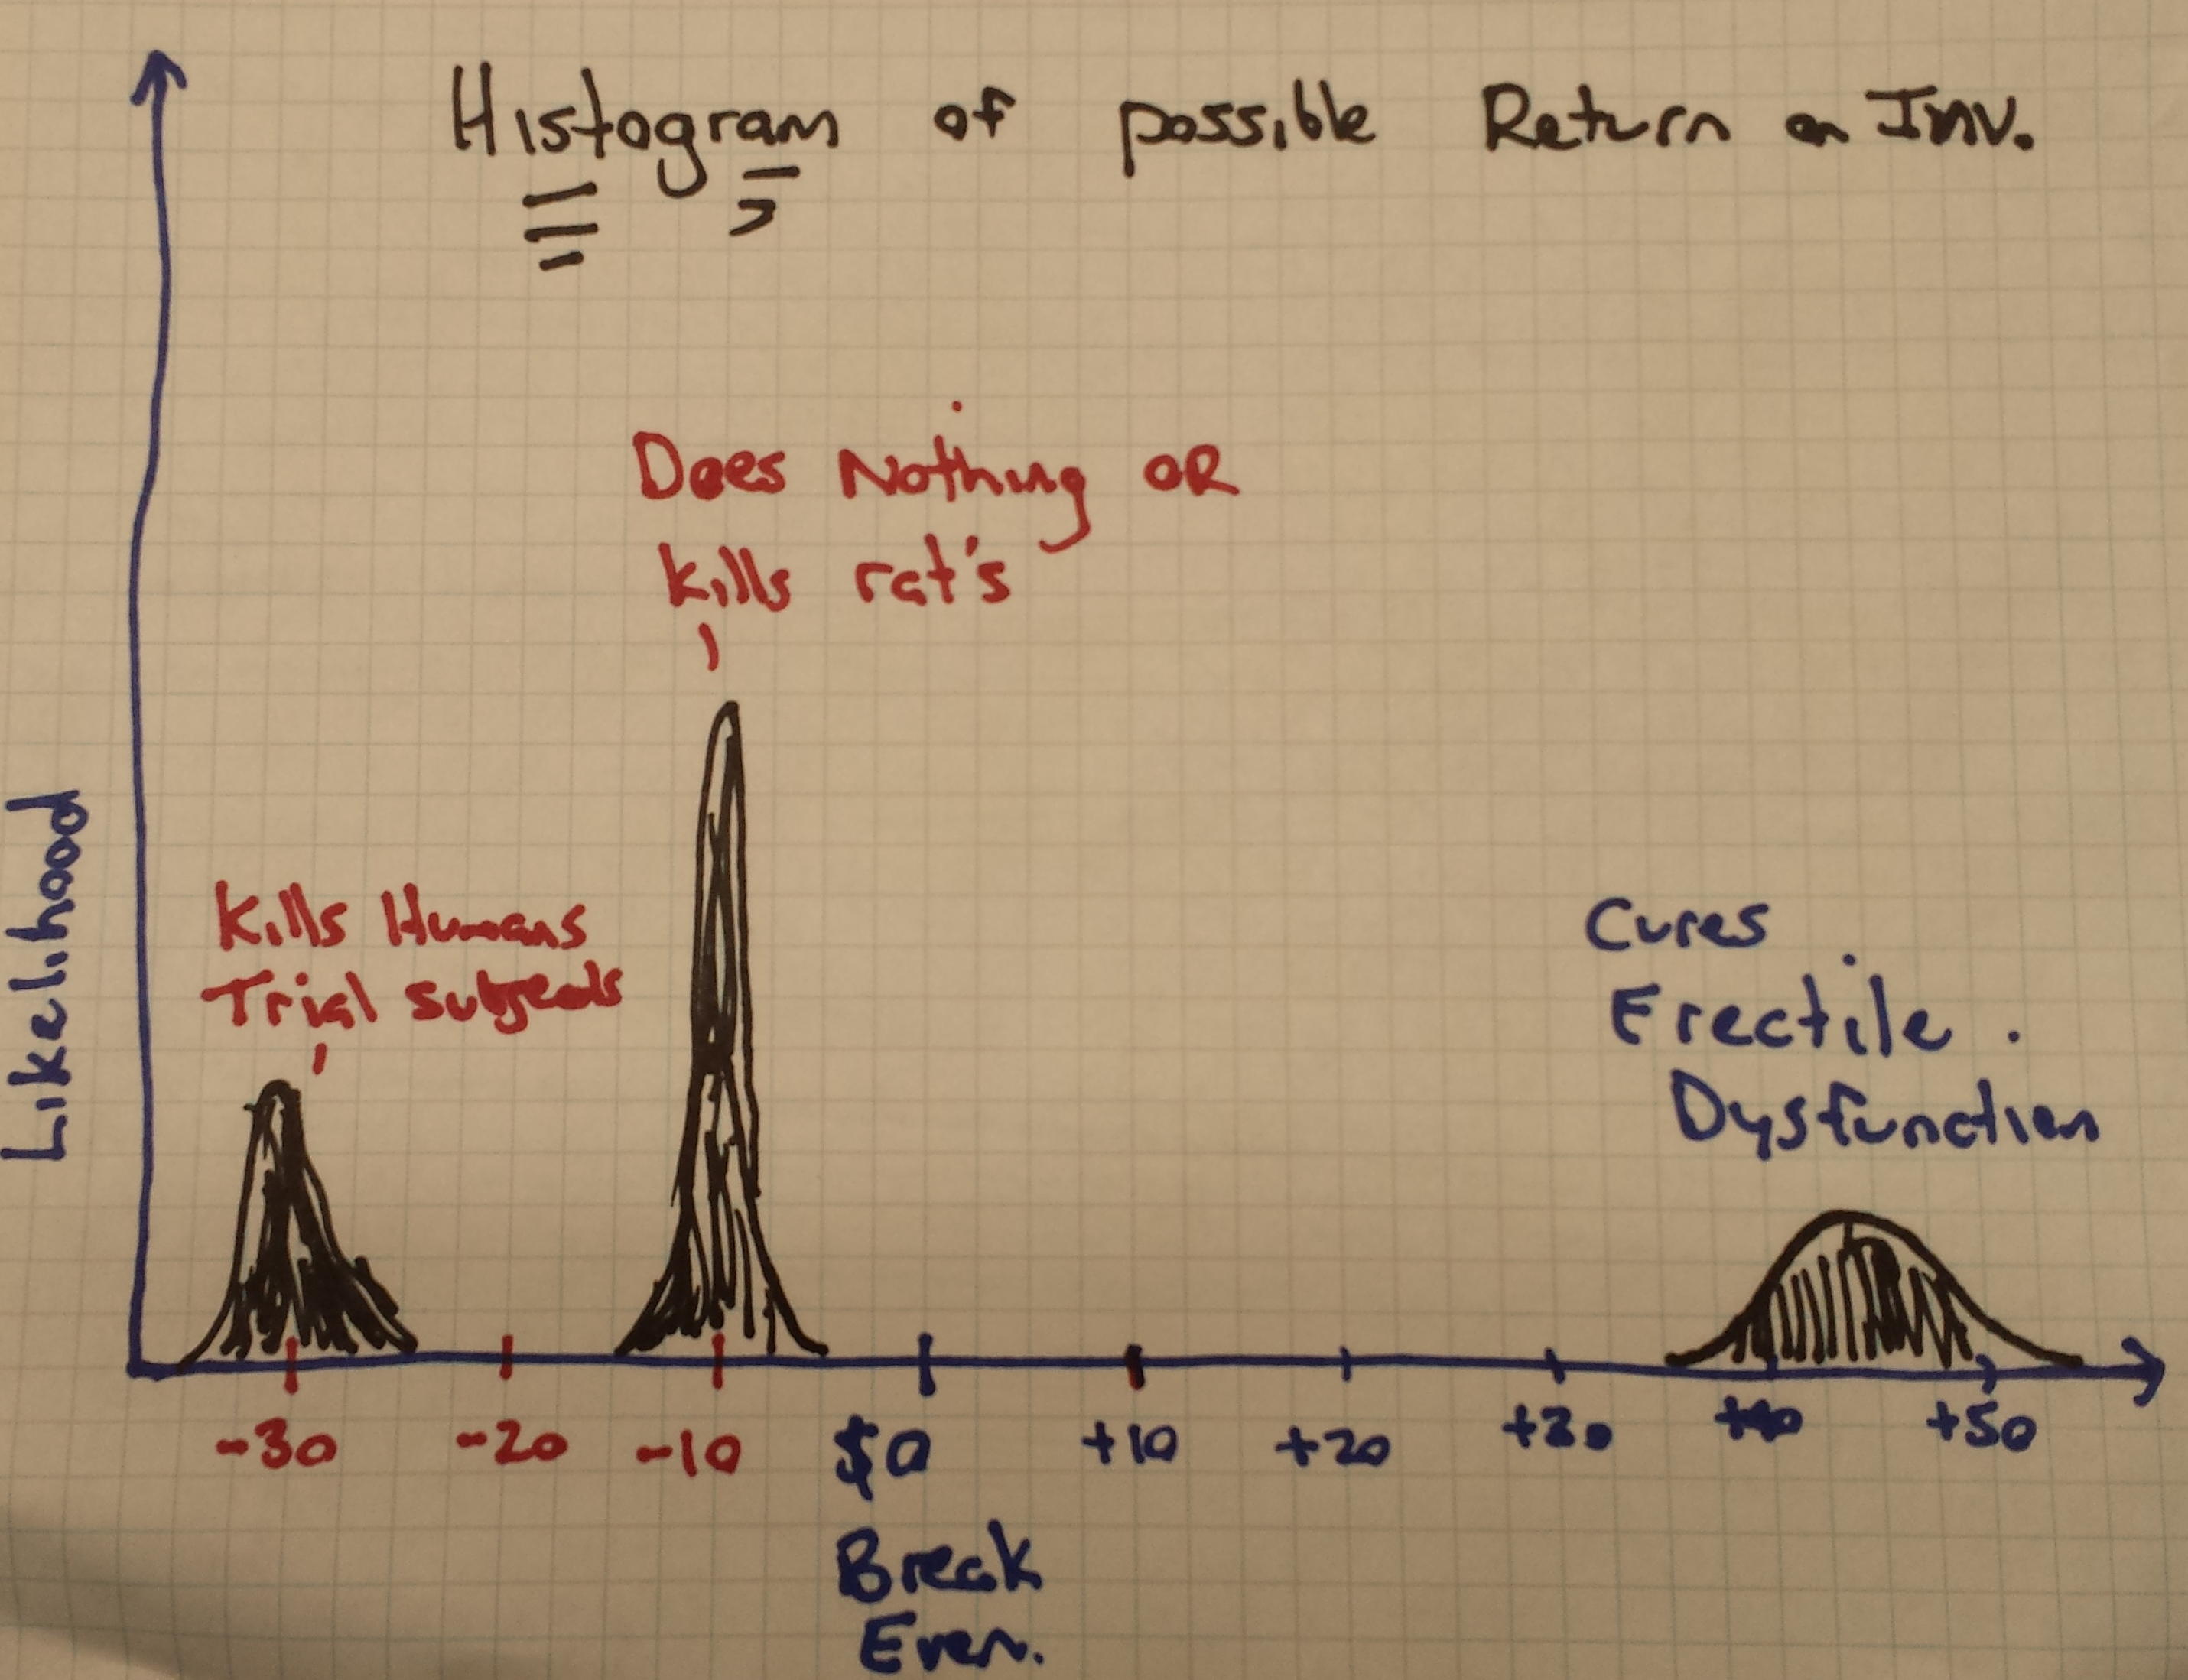 Histogram of possible Return on Inv.
Does Nothing OR
kills rat's
Kills Humans
Trial subjects
Cures
Erectile.
Dysfunction
Likelihood
-30 -20 -10 $0 +10 +20 +30 +40 +50
Break
Even.